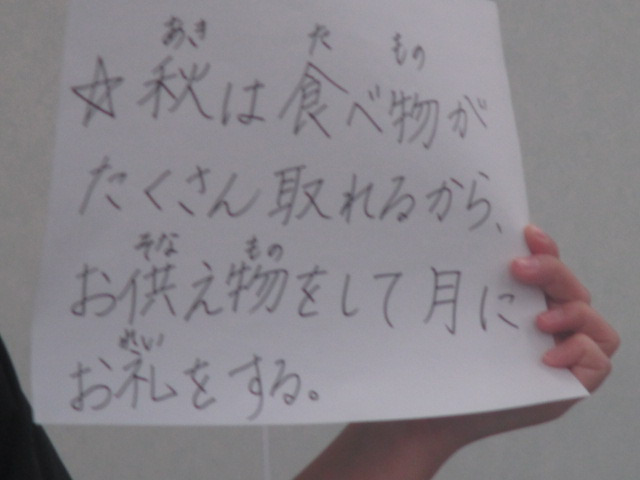 ☆秋は食べ物が
たくさん取れるから、
お供え物をして月に
お礼をする。
あき
た
もの
そな
もの
れい